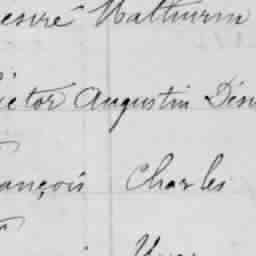 esiré Mathurin
ictor Augustin Dési
ançois Charles